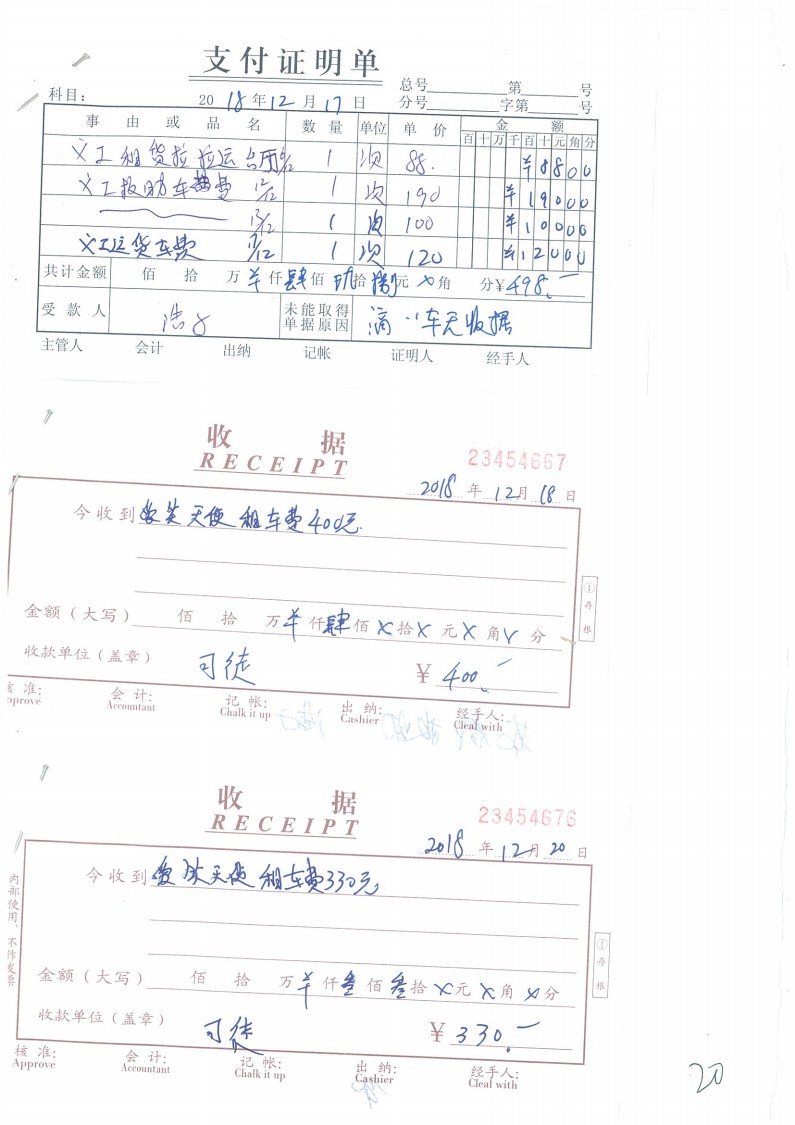 支付证明单
总号 第 号
科目: 2018年12月17日 分号 字第 号
事由或品名 数量 单位 单价 金额
百十万千百十元角分
义工租货拉拉运 1 次 88. ¥8800
义工 车费 1 次 190 ¥19000
1 次 100 ¥10000
义工运货车费 1 次 120 ¥12000
共计金额 佰 拾 万 仟肆佰玖拾捌元 角 分¥498.
受款人 浩 未能取得单据原因 滴 车无收据
主管人 会计 出纳 记帐 证明人 经手人
收据
RECEIPT
23454667
2018年12月18日
今收到 天使租车费400元.
金额(大写) 佰 拾 万 仟肆佰X拾X元X角 分
①存根
收款单位(盖章) 司徒 ¥400.
核准: 会计: 记帐: 出纳: 经手人:
pprove Accountant Chalk it up Cashier Cleal with
收据
RECEIPT
23454676
2018年12月20日
今收到 天使租车费330元
内部使用,不作发票
金额(大写) 佰 拾 万 仟叁佰叁拾X元X角X分
①存根
收款单位(盖章) 司徒 ¥330.
核准: 会计: 记帐: 出纳: 经手人:
Approve Accountant Chalk it up Cashier Cleal with
20